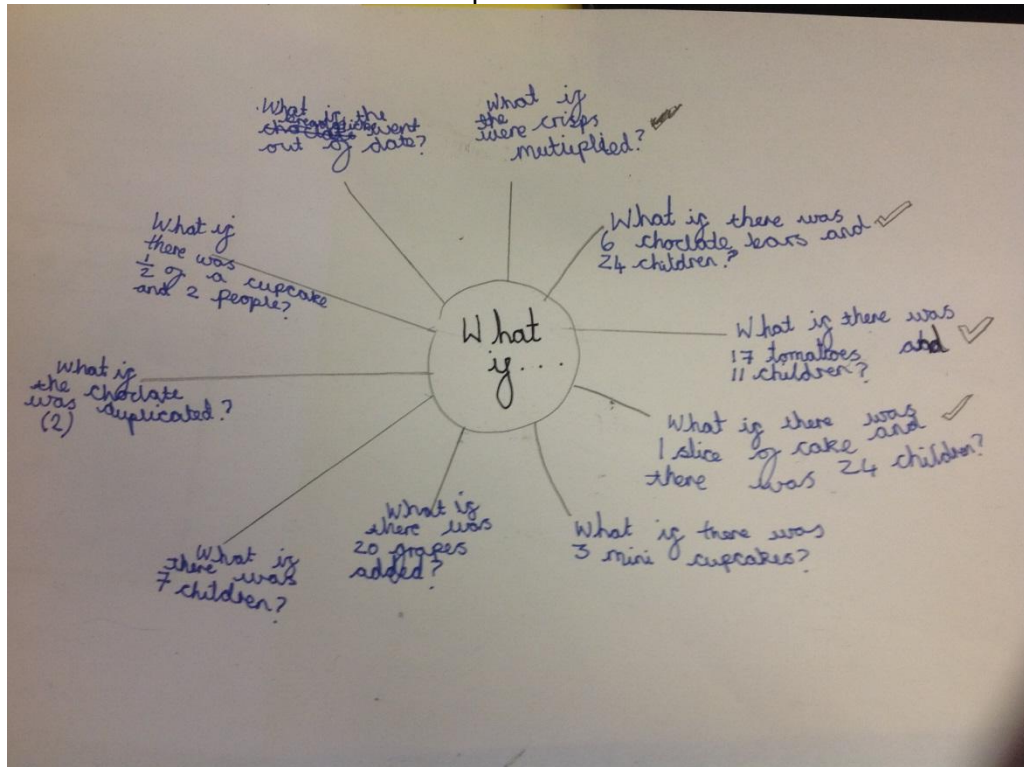 What
if...
What if
the
were crisps
mutiuplited?
What if there was
6 choclate bars and
24 children?
What if there was
17 tomatoes and
11 children?
What if there was
1 slice of cake and
there was 24 children?
What if there was
3 mini cupcakes?
What if
there was
20 grapes
added?
What if
there was
7 children?
What if
the choclate
was duplicated?
(2)
What if
there was
1/2 of a cupcake
and 2 people?
What if the
went
out of date?